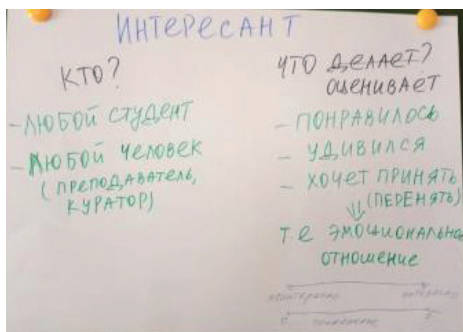 ИНТЕРЕСАНТ
КТО?
- ЛЮБОЙ СТУДЕНТ
- ЛЮБОЙ ЧЕЛОВЕК
(ПРЕПОДАВАТЕЛЬ,
КУРАТОР)
ЧТО ДЕЛАЕТ?
ОЦЕНИВАЕТ
- ПОНРАВИЛОСЬ
- УДИВИЛСЯ
- ХОЧЕТ ПРИНЯТЬ
(ПЕРЕНЯТЬ)
Т.Е ЭМОЦИОНАЛЬНОЕ
ОТНОШЕНИЕ
неинтересно интересно